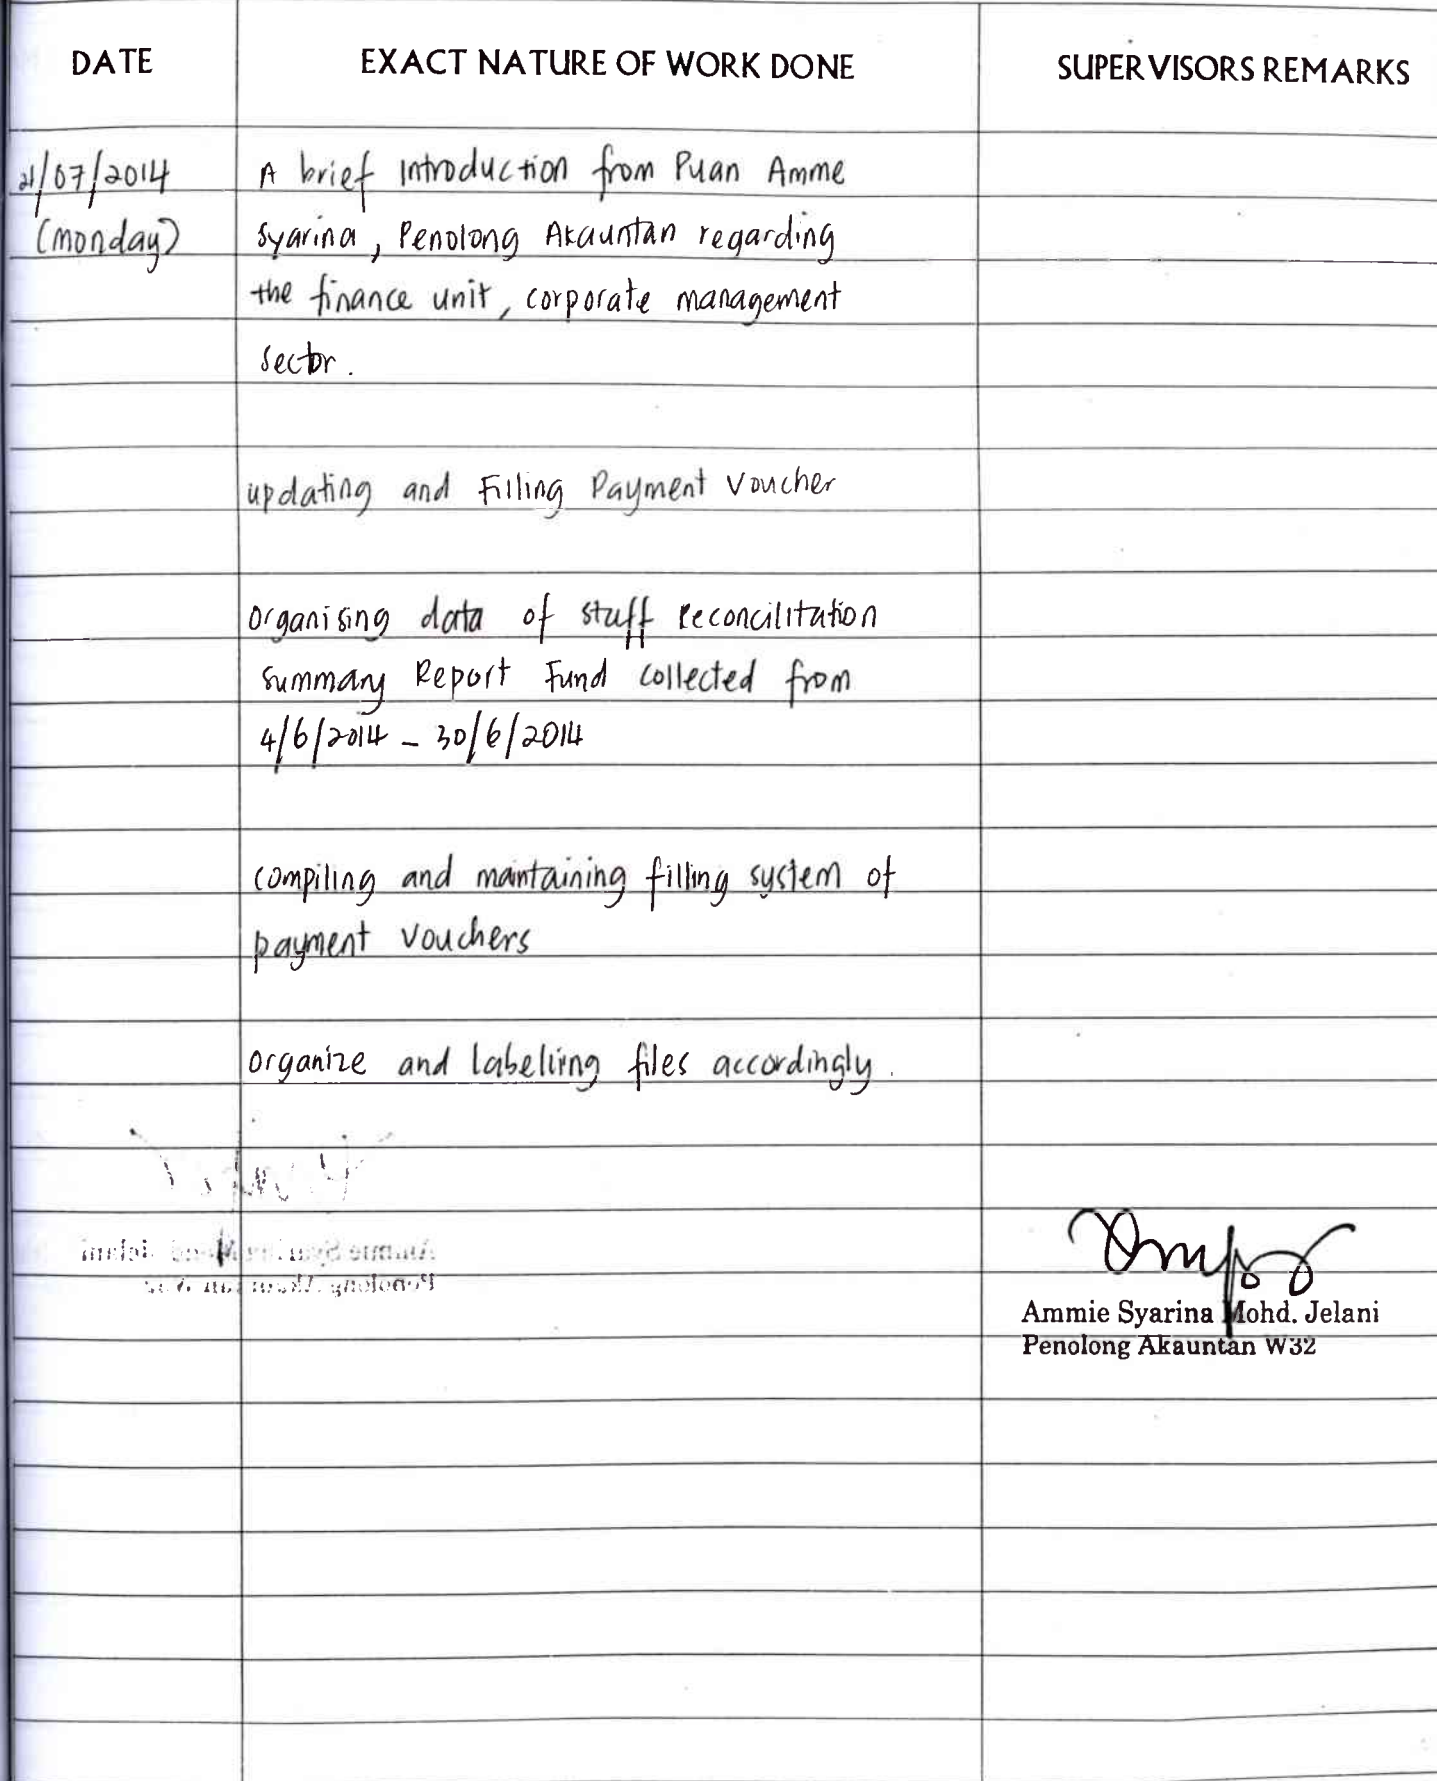 DATE EXACT NATURE OF WORK DONE SUPERVISORS REMARKS
21/07/2014 A brief Introduction from Puan Amme
(monday) Syarina, Penolong Akauntan regarding
the finance unit, corporate management
sector.
updating and Filling Payment Voucher
organising data of staff Reconcilitation
Summary Report Fund collected from
4/6/2014 - 30/6/2014
compiling and maintaining filling system of
payment vouchers
organize and labelling files accordingly.
Ammie Syarina Mohd. Jelani
Penolong Akauntan W32